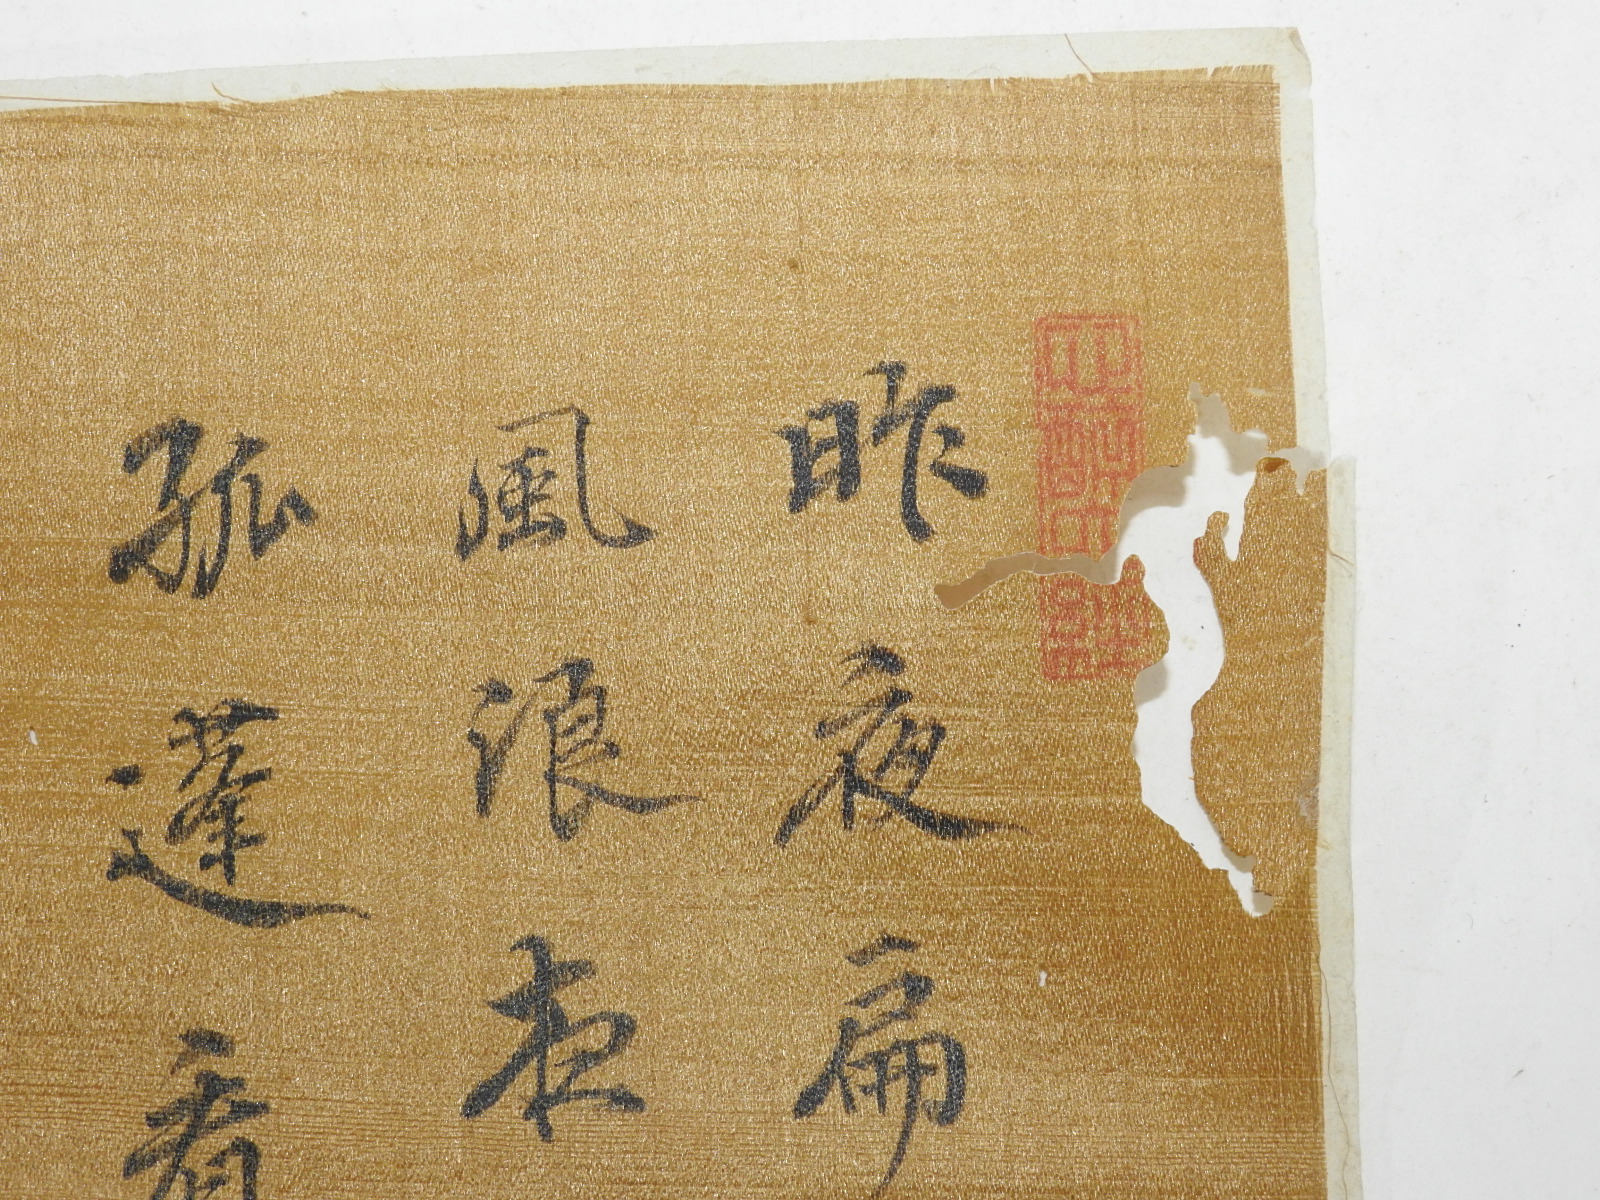 昨夜扁
風浪
孤蓬看